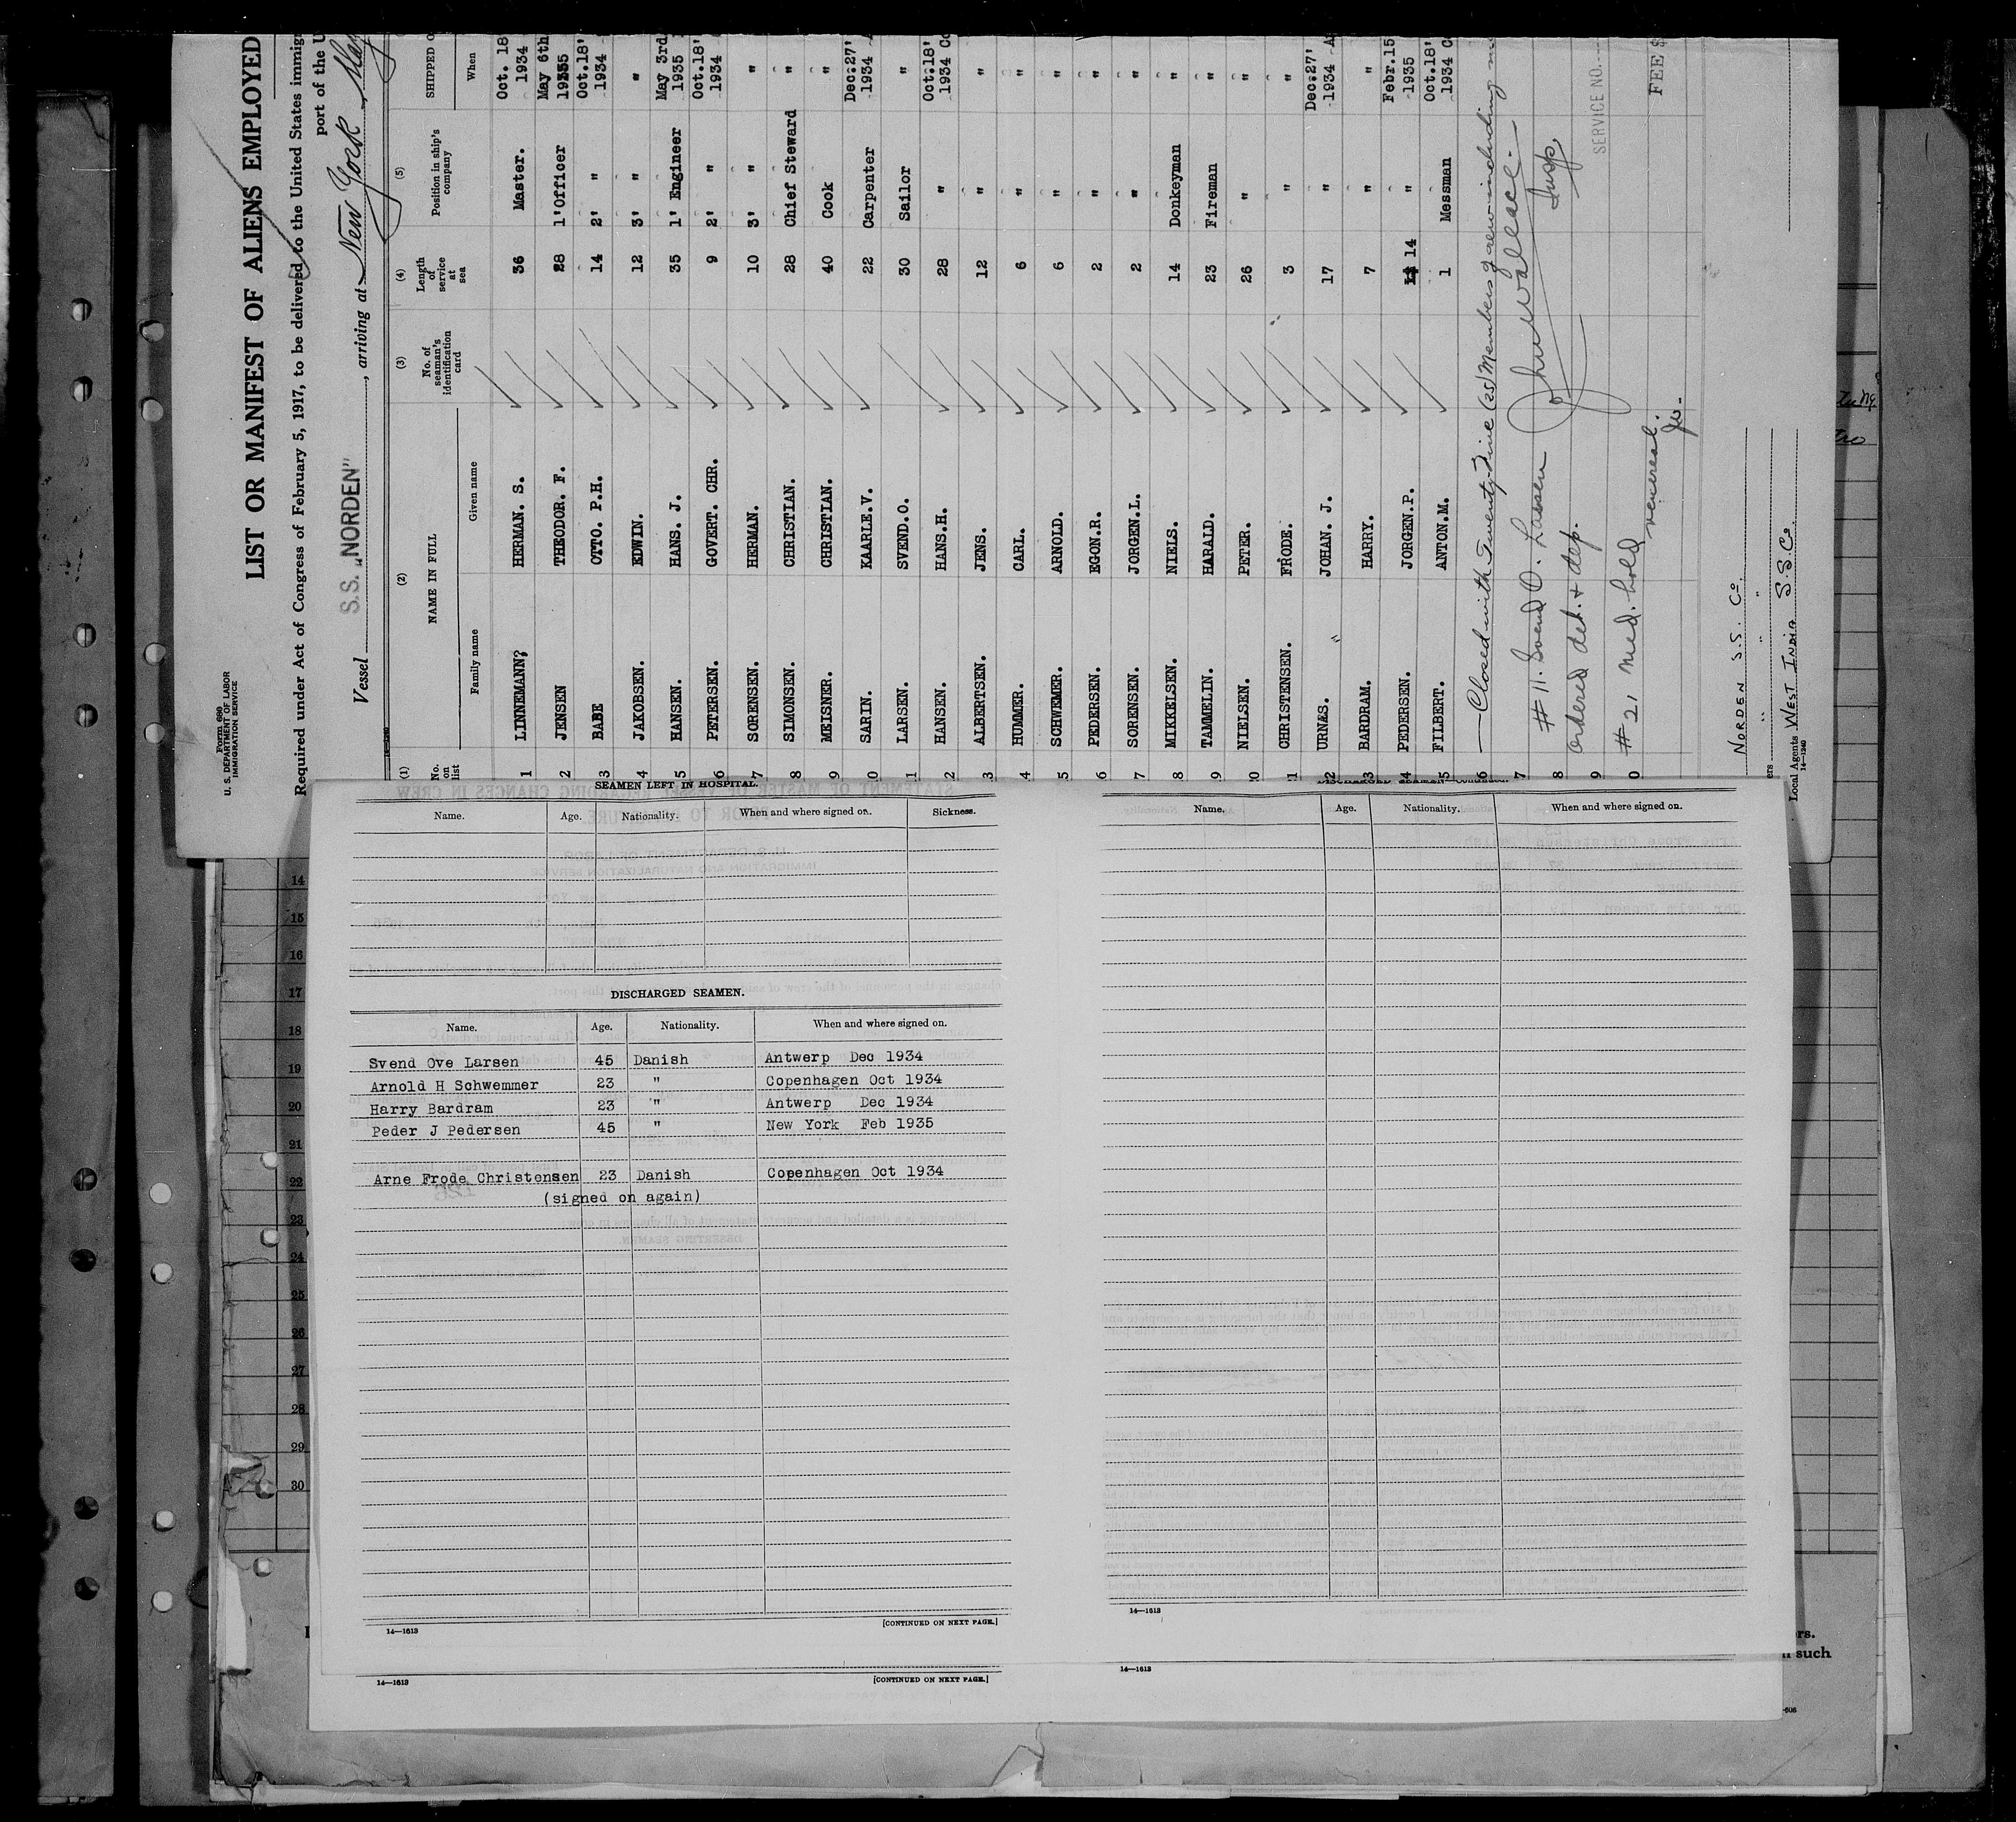 Form 680
U. S. DEPARTMENT OF LABOR
IMMIGRATION SERVICE
LIST OR MANIFEST OF ALIENS EMPLOYED
Required under Act of Congress of February 5, 1917, to be delivered to the United States immigr
port of the U
Vessel S.S. „NORDEN”, arriving at New York May
(1) (2) (3) (4) (5)
No. on list NAME IN FULL No. of seaman's identification card Length of service at sea Position in ship's company SHIPPED O
Family name Given name When
1 LINNEMANN? HERMAN. S. 36 Master. Oct. 18' 1934
2 JENSEN THEODOR. F. 28 1'Officer May 6th 1935
3 BABE OTTO. P.H. 14 2' " Oct.18' 1934
4 JAKOBSEN. EDWIN. 12 3' " "
5 HANSEN. HANS. J. 35 1' Engineer May 3rd 1935
6 PETERSEN. GOVERT. CHR. 9 2' " Oct.18' 1934
7 SORENSEN. HERMAN. 10 3' " "
8 SIMONSEN. CHRISTIAN. 28 Chief Steward "
9 MEISNER. CHRISTIAN. 40 Cook "
0 SARIN. KAARLE.V. 22 Carpenter Dec:27' 1934 A
1 LARSEN. SVEND.O. 30 Sailor "
2 HANSEN. HANS.H. 28 " Oct:18' 1934 Co
3 ALBERTSEN. JENS. 12 " "
4 HUMMER. CARL. 6 " "
5 SCHWEMER. ARNOLD. 6 " "
6 PEDERSEN. EGON.R. 2 " "
7 SORENSEN. JORGEN.L. 2 " "
8 MIKKELSEN. NIELS. 14 Donkeyman "
9 TAMMELIN. HARALD. 23 Fireman "
0 NIELSEN. PETER. 26 " "
1 CHRISTENSEN. FRODE. 3 " "
2 URNÆS. " JOHAN. J. 17 " Dec:27' 1934 A
3 BARDRAM. HARRY. 7 " "
4 PEDERSEN. JORGEN.P. 14 " Febr.15 1935
5 FILBERT. ANTON.M. 1 Messman Oct.18' 1934 C
6 Closed with Twenty-Five (25) Members of crew including
7 # 11. Svend O. Lassen John W Wallace
8 ordered det. & dep. Insp
9
0 # 21 med. hold venereal.
Jw.
SERVICE NO.
FEE $
NORDEN S.S. Co.
ers " " "
Local Agents WEST INDIA S.S. Co
14—1240
SEAMEN LEFT IN HOSPITAL.
Name. Age. Nationality. When and where signed on. Sickness.
DISCHARGED SEAMEN.
Name. Age. Nationality. When and where signed on.
Svend Ove Larsen 45 Danish Antwerp Dec 1934
Arnold H Schwemmer 23 " Copenhagen Oct 1934
Harry Bardram 23 " Antwerp Dec 1934
Peder J Pedersen 45 " New York Feb 1935
Arne Frode Christensen 23 Danish Copenhagen Oct 1934
(signed on again)
14—1613 [CONTINUED ON NEXT PAGE.]
14—1613 [CONTINUED ON NEXT PAGE.]
Name. Age. Nationality. When and where signed on.
14—1613
14—1613
14
15
16
17
18
19
20
21
22
23
24
25
26
27
28
29
30
ors.
n such